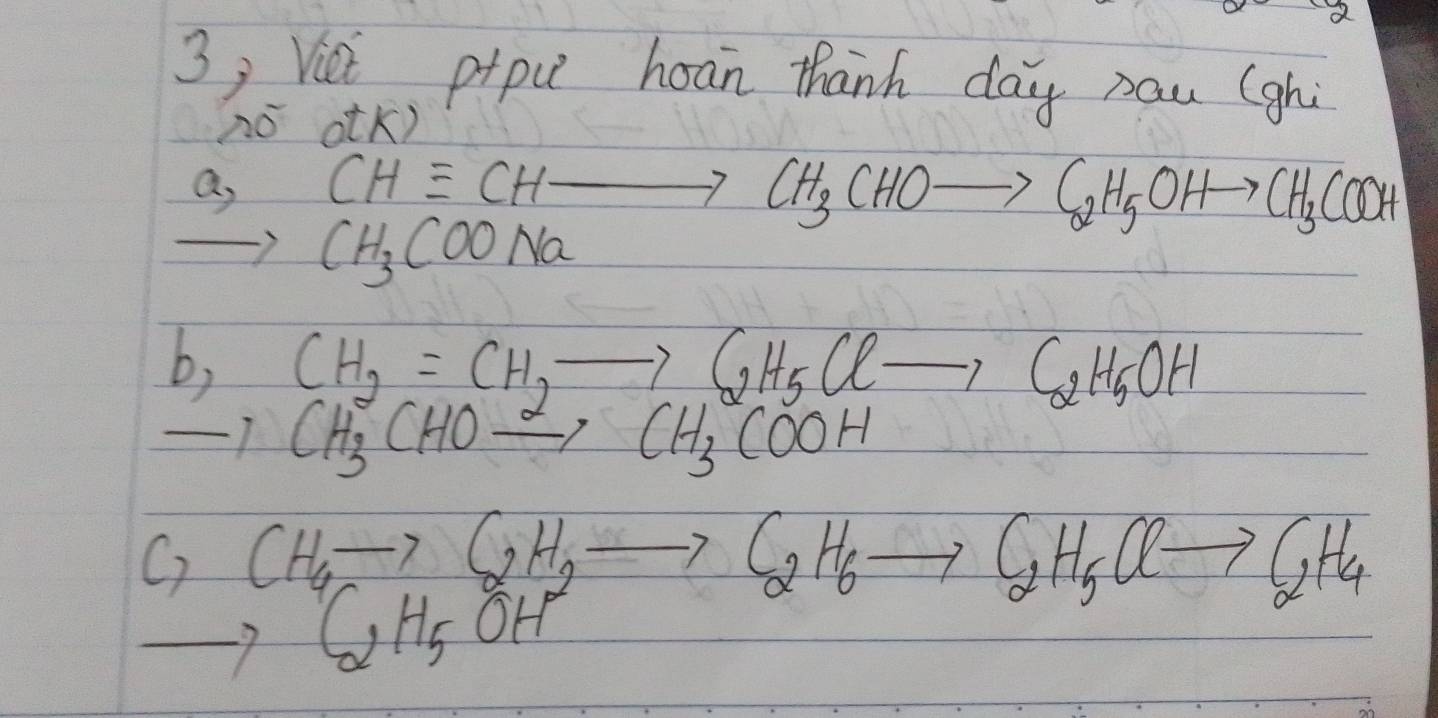 3, Viết ptpư hoàn thành dãy sau (ghi
rõ đtK)
a, CH ≡ CH → CH₃CHO → C₂H₅OH → CH₃COOH
→ CH₃COONa
b, CH₂ = CH₂ → C₂H₅Cl → C₂H₅OH
→ CH₃CHO →² CH₃COOH
c, CH₄ → C₂H₂ → C₂H₆ → C₂H₅Cl → C₂H₄
→ C₂H₅OH